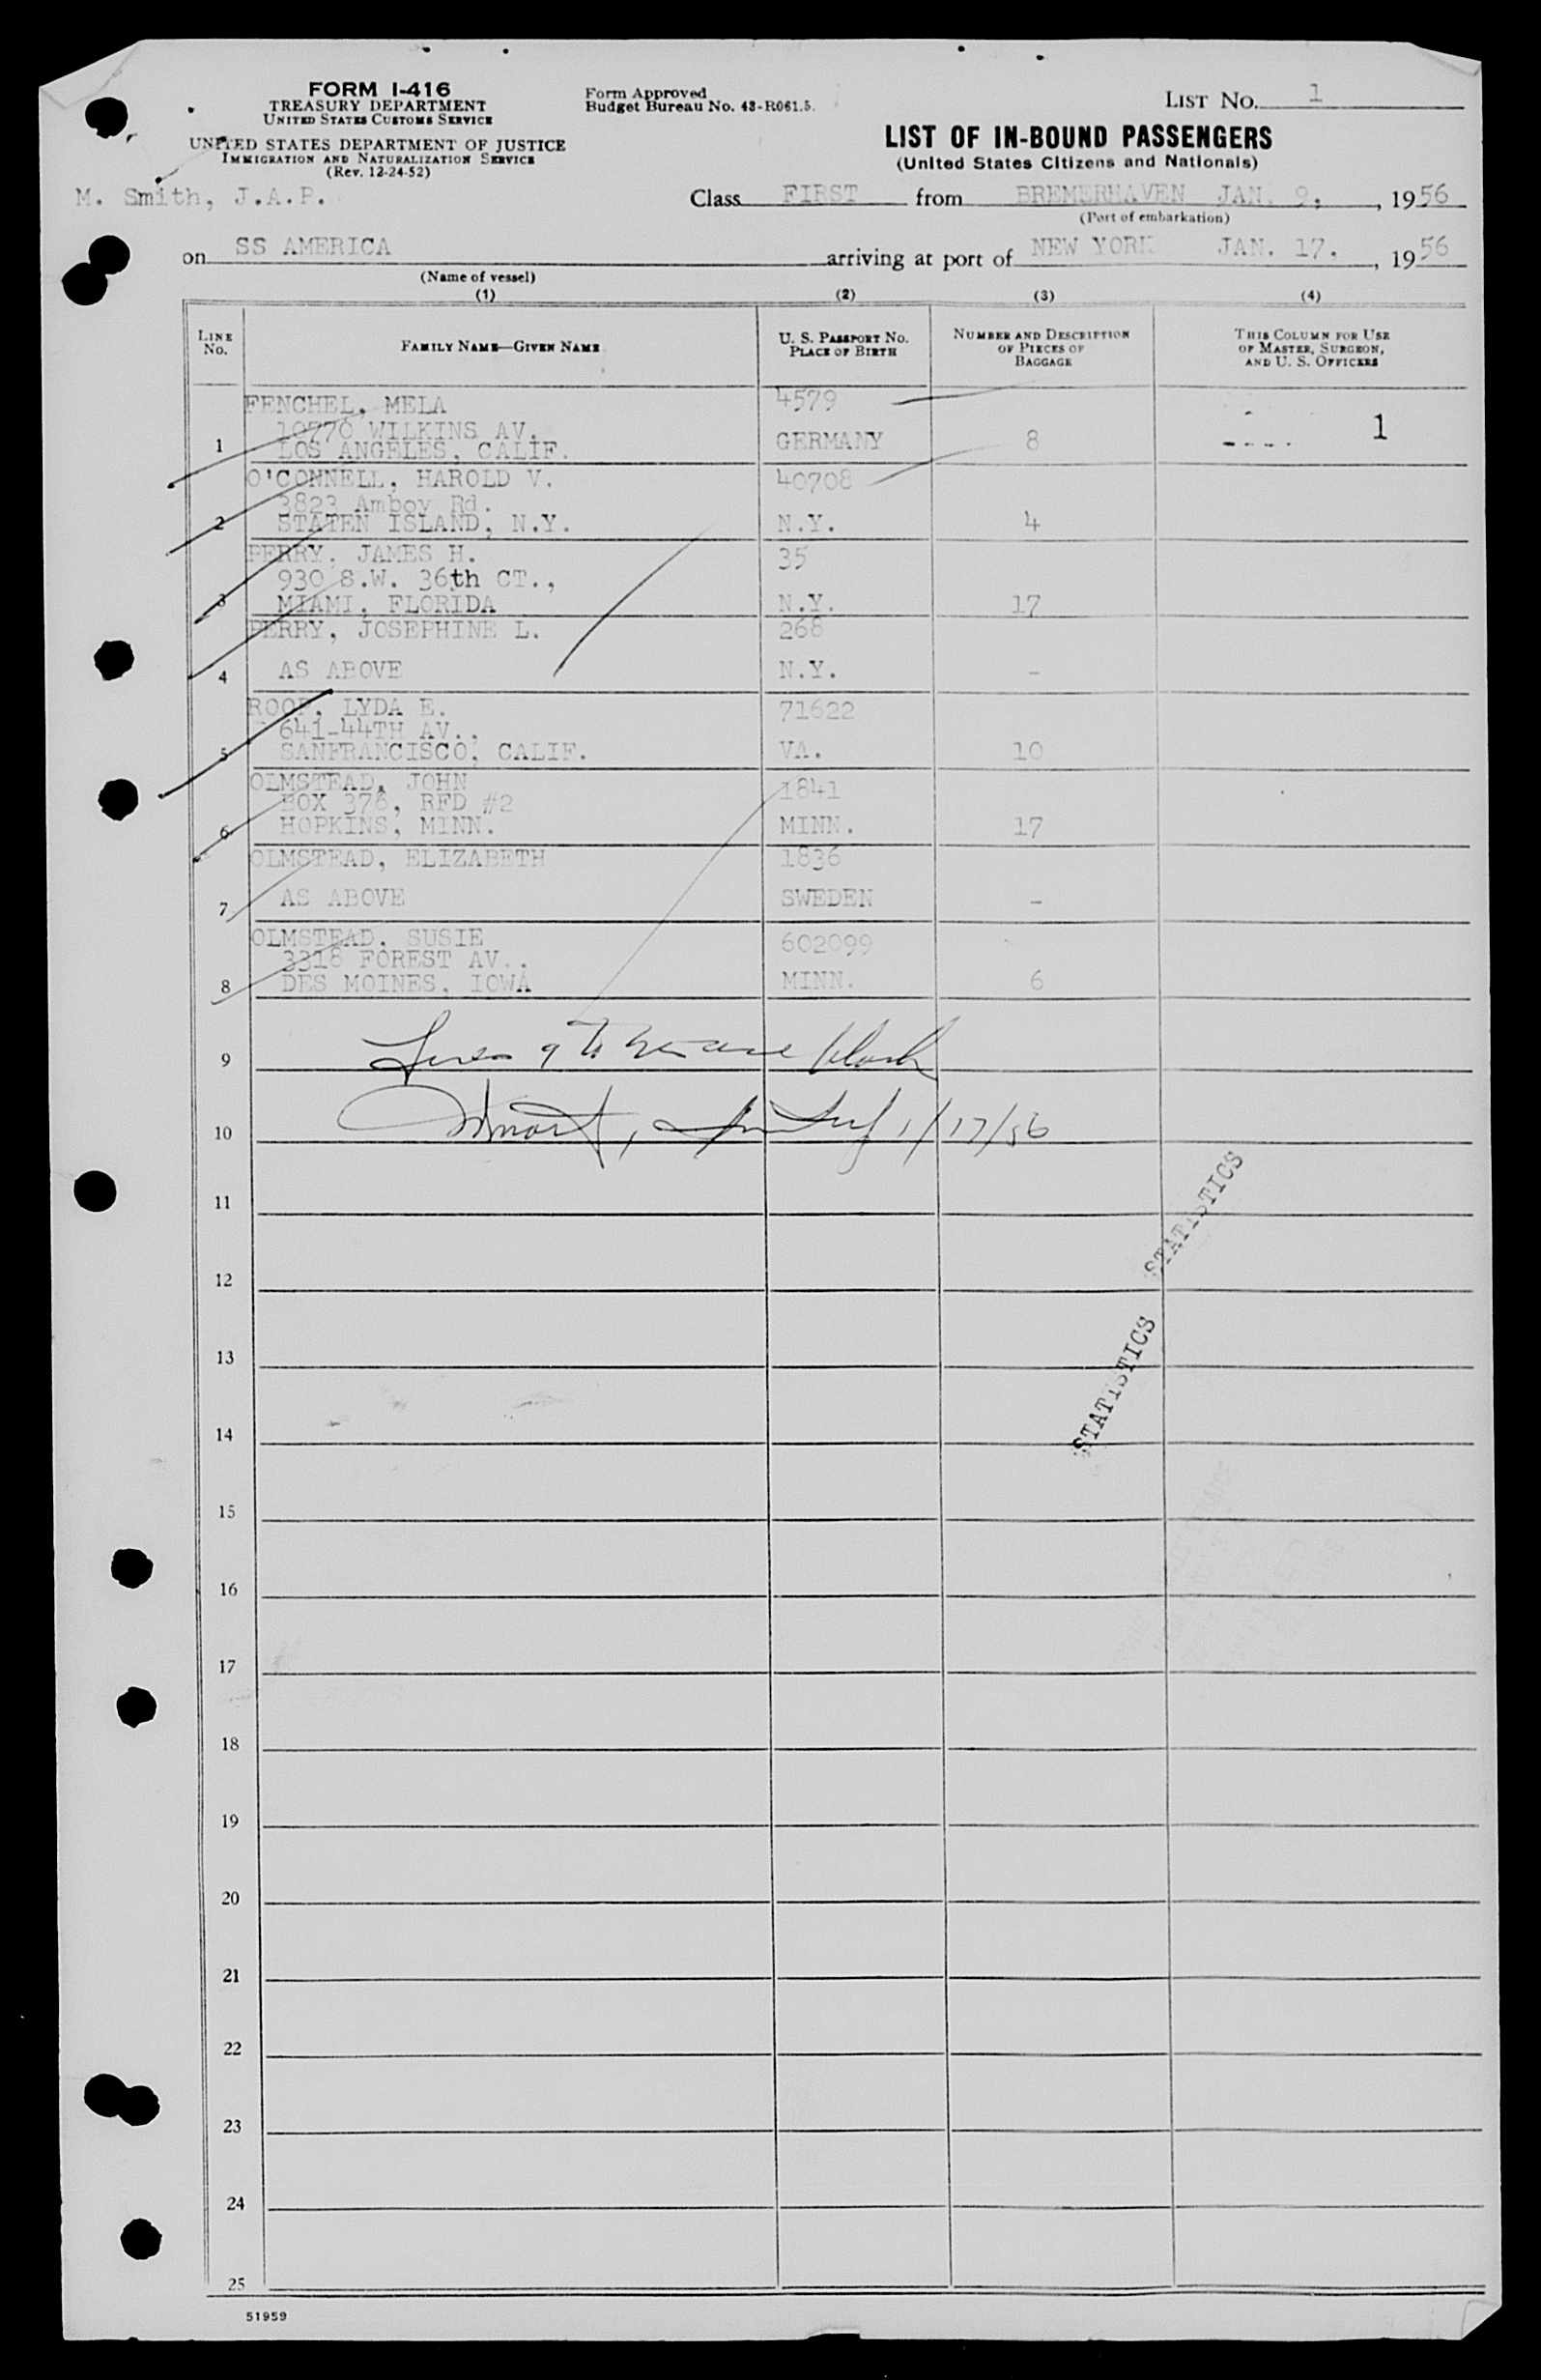 FORM I-416
TREASURY DEPARTMENT
UNITED STATES CUSTOMS SERVICE
UNITED STATES DEPARTMENT OF JUSTICE
IMMIGRATION AND NATURALIZATION SERVICE
(Rev. 12-24-52)
Form Approved
Budget Bureau No. 43-R061.5.
LIST NO. 1
LIST OF IN-BOUND PASSENGERS
(United States Citizens and Nationals)
M. Smith, J.A.P.
Class FIRST from BREMERHAVEN JAN. 9, , 1956
(Port of embarkation)
on SS AMERICA arriving at port of NEW YORK JAN. 17. , 1956
(Name of vessel)
(1) (2) (3) (4)
LINE NO. FAMILY NAME—GIVEN NAME U. S. PASSPORT NO. PLACE OF BIRTH NUMBER AND DESCRIPTION OF PIECES OF BAGGAGE THIS COLUMN FOR USE OF MASTER, SURGEON, AND U. S. OFFICERS
FENCHEL, MELA 4579
10770 WILKINS AV.
1 LOS ANGELES, CALIF. GERMANY 8 1
O'CONNELL, HAROLD V. 40708
3823 Amboy Rd.
2 STATEN ISLAND, N.Y. N.Y. 4
PERRY. JAMES H. 35
930 S.W. 36th CT.,
3 MIAMI, FLORIDA N.Y. 17
PERRY, JOSEPHINE L. 268
4 AS ABOVE N.Y. -
ROOP, LYDA E. 71622
641-44TH AV..
5 SANFRANCISCO, CALIF. VA. 10
OLMSTEAD, JOHN 1841
BOX 376, RFD #2
6 HOPKINS, MINN. MINN. 17
OLMSTEAD, ELIZABETH 1836
7 AS ABOVE SWEDEN -
OLMSTEAD, SUSIE 602099
3318 FOREST AV..
8 DES MOINES, IOWA MINN. 6
9 Lines 9 to blank
10 1/17/56
11
STATISTICS
12
13
STATISTICS
14
15
16
17
18
19
20
21
22
23
24
25
51959